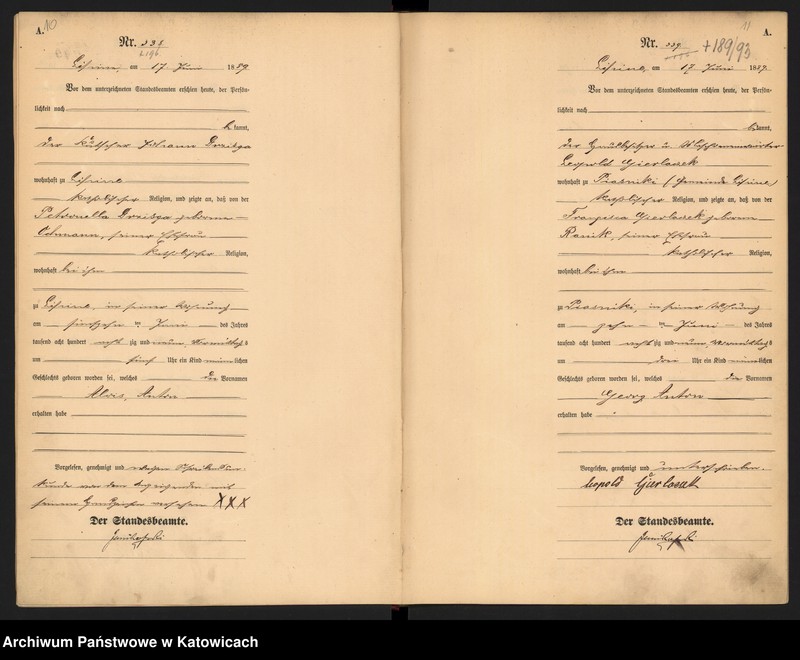 A. 10
Nr. 338
Lipine, am 17 Juni 1889.
Vor dem unterzeichneten Standesbeamten erschien heute, der Persön-
lichkeit nach
kannt,
der Kutscher Johann Dreisga
wohnhaft zu Lipine
katholischer Religion, und zeigte an, daß von der
Petronella Dreisga geborene
Ochmann, seiner Ehefrau
katholischer Religion,
wohnhaft bei ihm
zu Lipine, in seiner Wohnung
am fünfzehn ten Juni des Jahres
tausend acht hundert acht zig und neun, Vormittags
um fünf Uhr ein Kind männlichen
Geschlechts geboren worden sei, welches die Vornamen
Alois, Anton
erhalten habe
Vorgelesen, genehmigt und wegen Schreibensun-
kunde von dem Anzeigenden mit
seinem Handzeichen versehen XXX
Der Standesbeamte.
11 A.
Nr. 339 +189/93
Lipine, am 17 Juni 1889.
Vor dem unterzeichneten Standesbeamten erschien heute, der Persön-
lichkeit nach
kannt,
der
Leopold Gierlasek
wohnhaft zu Piasniki (Gemeinde Lipine)
katholischer Religion, und zeigte an, daß von der
Franziska Gierlasek geborene
Ranik, seiner Ehefrau
katholischer Religion,
wohnhaft bei ihm
zu Piasniki, in seiner Wohnung
am zehn ten Juni des Jahres
tausend acht hundert acht zig und neun, Vormittags
um drei Uhr ein Kind männlichen
Geschlechts geboren worden sei, welches die Vornamen
Georg Anton
erhalten habe
Vorgelesen, genehmigt und unterschrieben.
Leopold Gierlasek
Der Standesbeamte.
Archiwum Państwowe w Katowicach